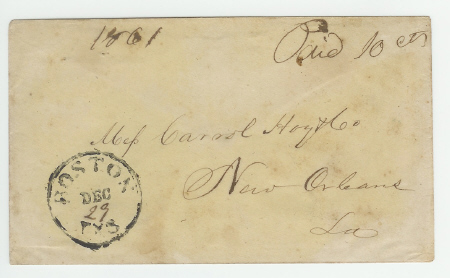 1861
Paid 10 cts
Mess Carrol Hoy & Co
New Orleans
La
BOSTON
DEC
29
TXS